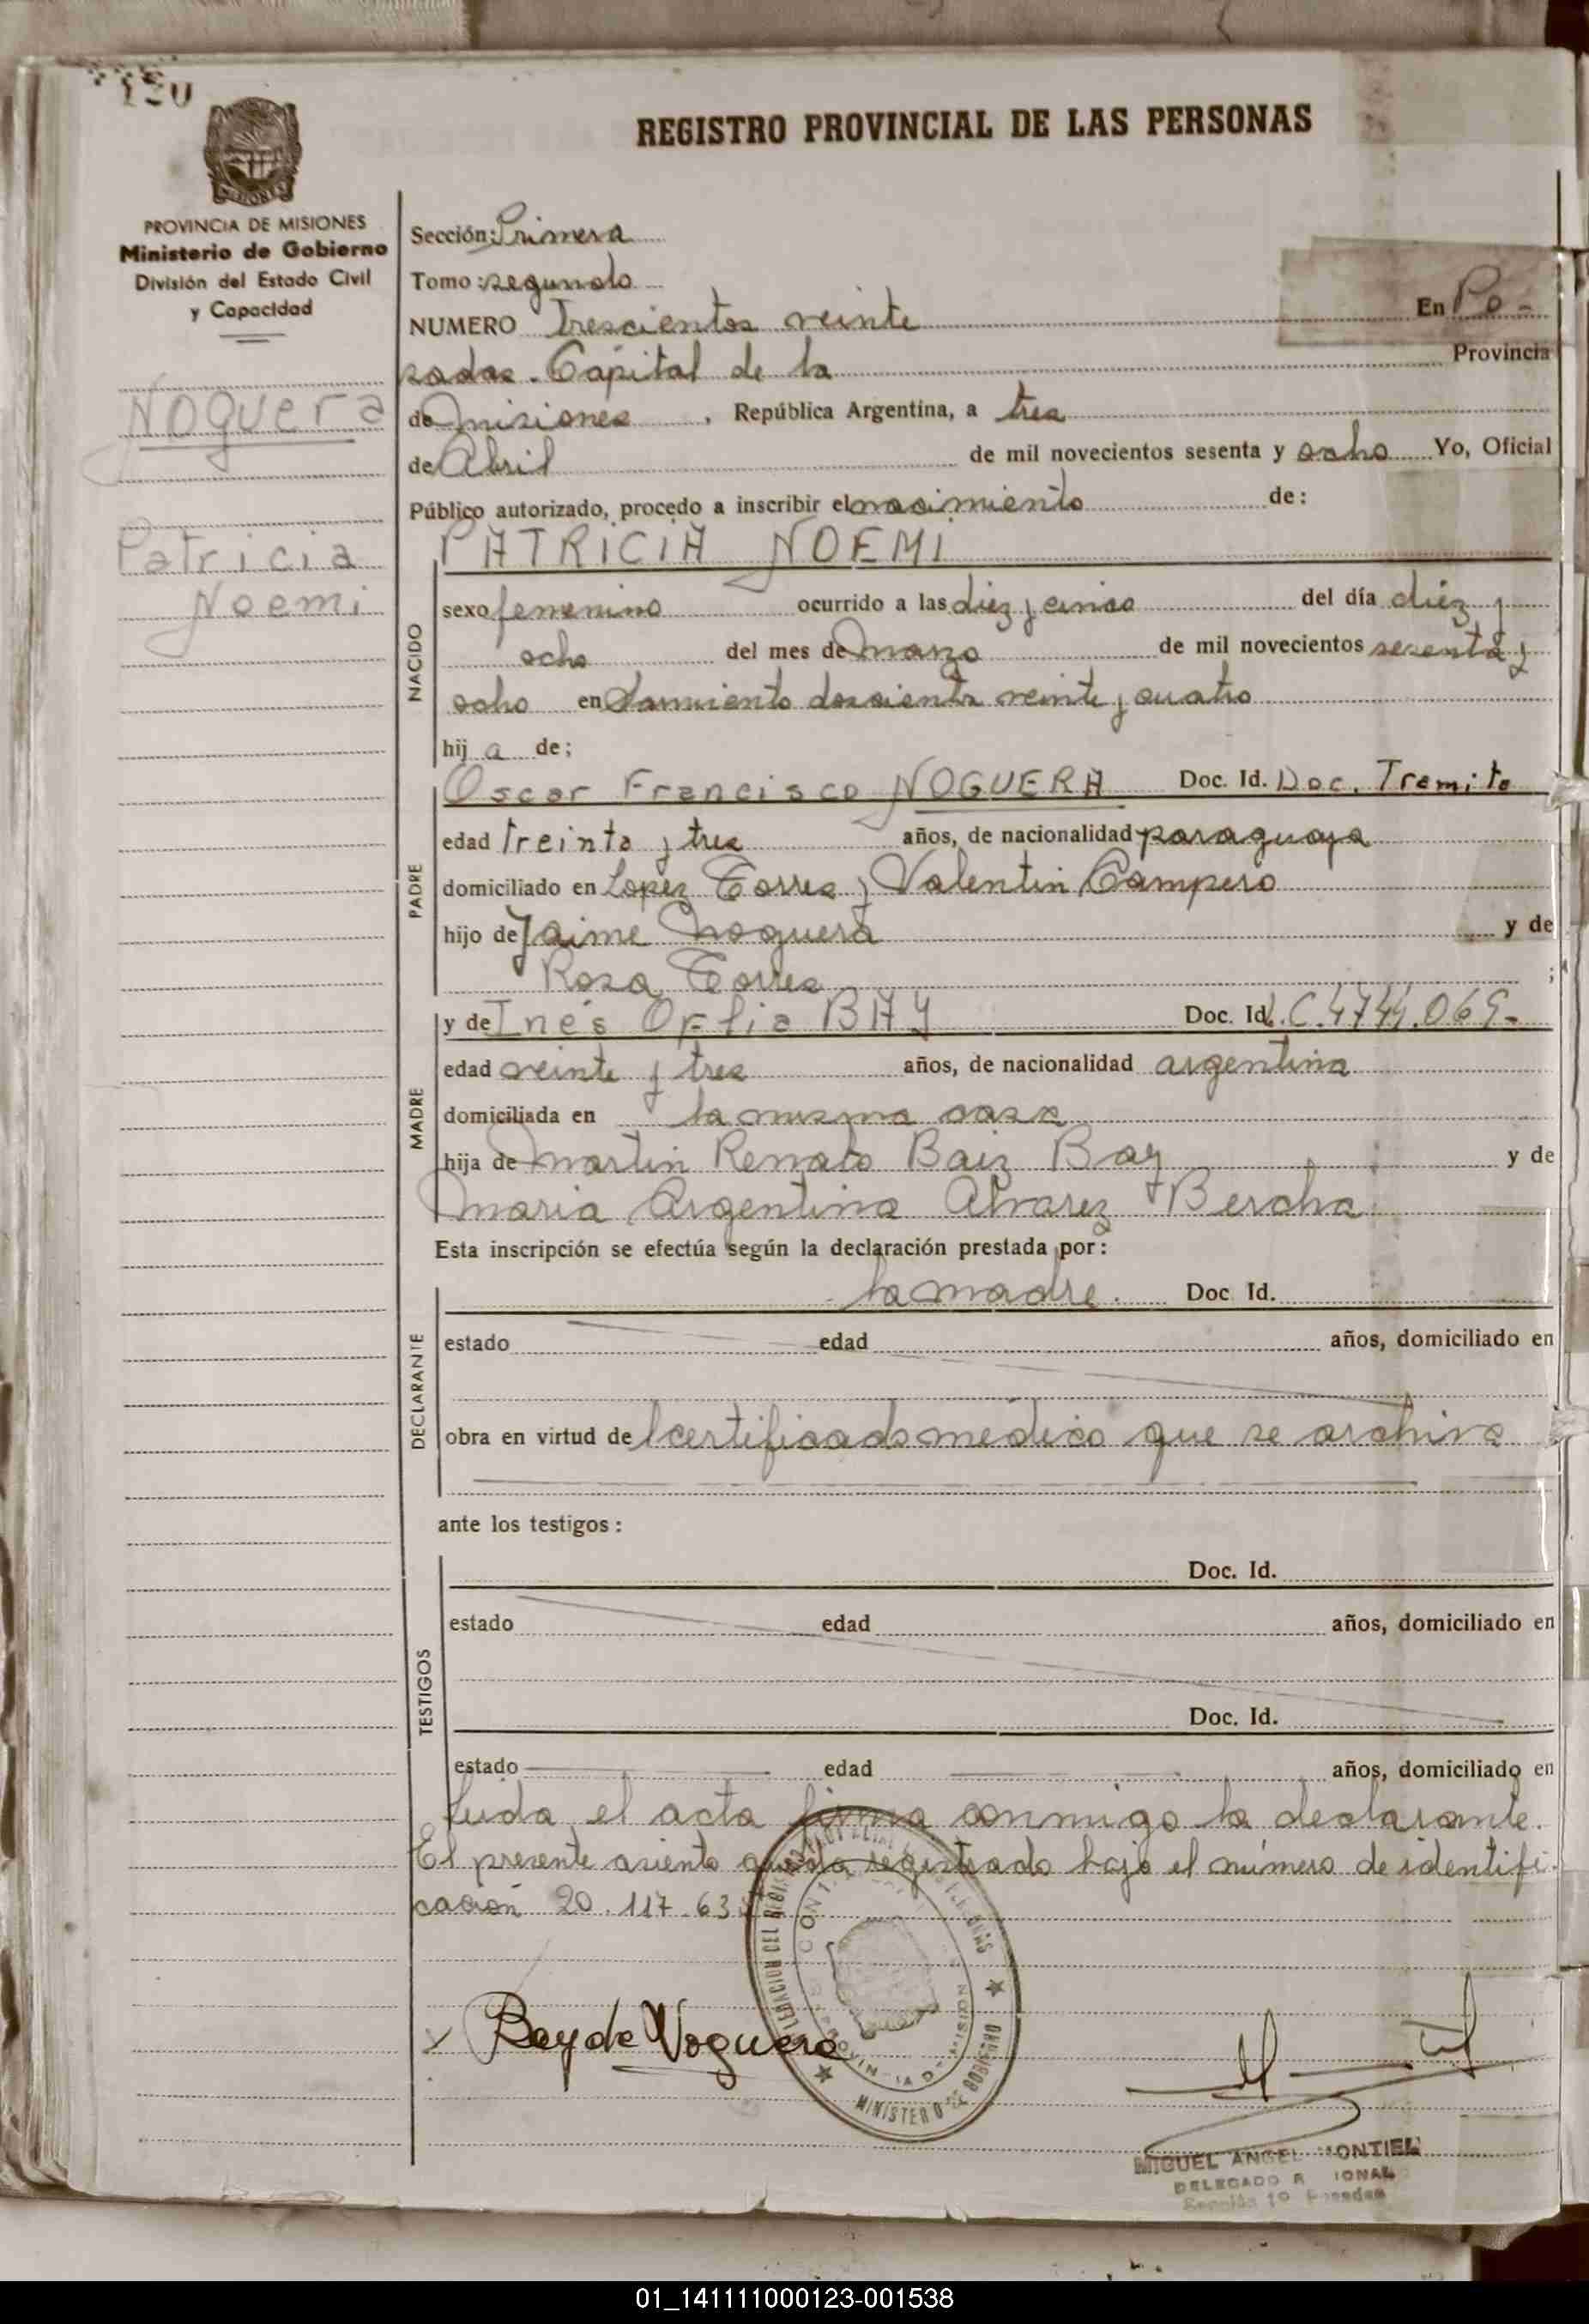 120
REGISTRO PROVINCIAL DE LAS PERSONAS
PROVINCIA DE MISIONES
Ministerio de Gobierno
División del Estado Civil
y Capacidad
Noguera
Patricia
Noemi
Sección: Primera
Tomo: segundo
NUMERO Trescientos veinte En Po-
sadas. Capital de la Provincia
de Misiones, República Argentina, a tres
de Abril de mil novecientos sesenta y ocho Yo, Oficial
Público autorizado, procedo a inscribir el nacimiento de:
PATRICIA NOEMI
NACIDO
sexo femenino ocurrido a las diez y cinco del día diez y
ocho del mes de Marzo de mil novecientos sesenta y
ocho en Sarmiento doscientos veinte y cuatro
hij a de;
PADRE
Oscar Francisco NOGUERA Doc. Id. Doc. Tramite
edad treinta y tres años, de nacionalidad paraguaya
domiciliado en Lopez Torres y Valentin Campero
hijo de Jaime Noguera y de
Rosa Torres ;
MADRE
y de Inés Ofelia BAY Doc. Id. L.C. 4744.069-
edad veinte y tres años, de nacionalidad argentina
domiciliada en la misma casa
hija de Martin Renato Baiz Bay y de
Maria Argentina Alvarez Bercha
Esta inscripción se efectúa según la declaración prestada por:
DECLARANTE
la madre. Doc. Id.
estado edad años, domiciliado en
obra en virtud de l certificado médico que se archiva
ante los testigos:
TESTIGOS
Doc. Id.
estado edad años, domiciliado en
Doc. Id.
estado edad años, domiciliado en
Leida el acta firma conmigo la declarante.
El presente asiento queda registrado bajo el número de identifi-
cación 20.117.63
Bay de Noguera
MINISTERIO DE GOBIERNO
MIGUEL ANGEL MONTIEL
DELEGADO R IONAL
Sección 1º Posadas
01_141111000123-001538